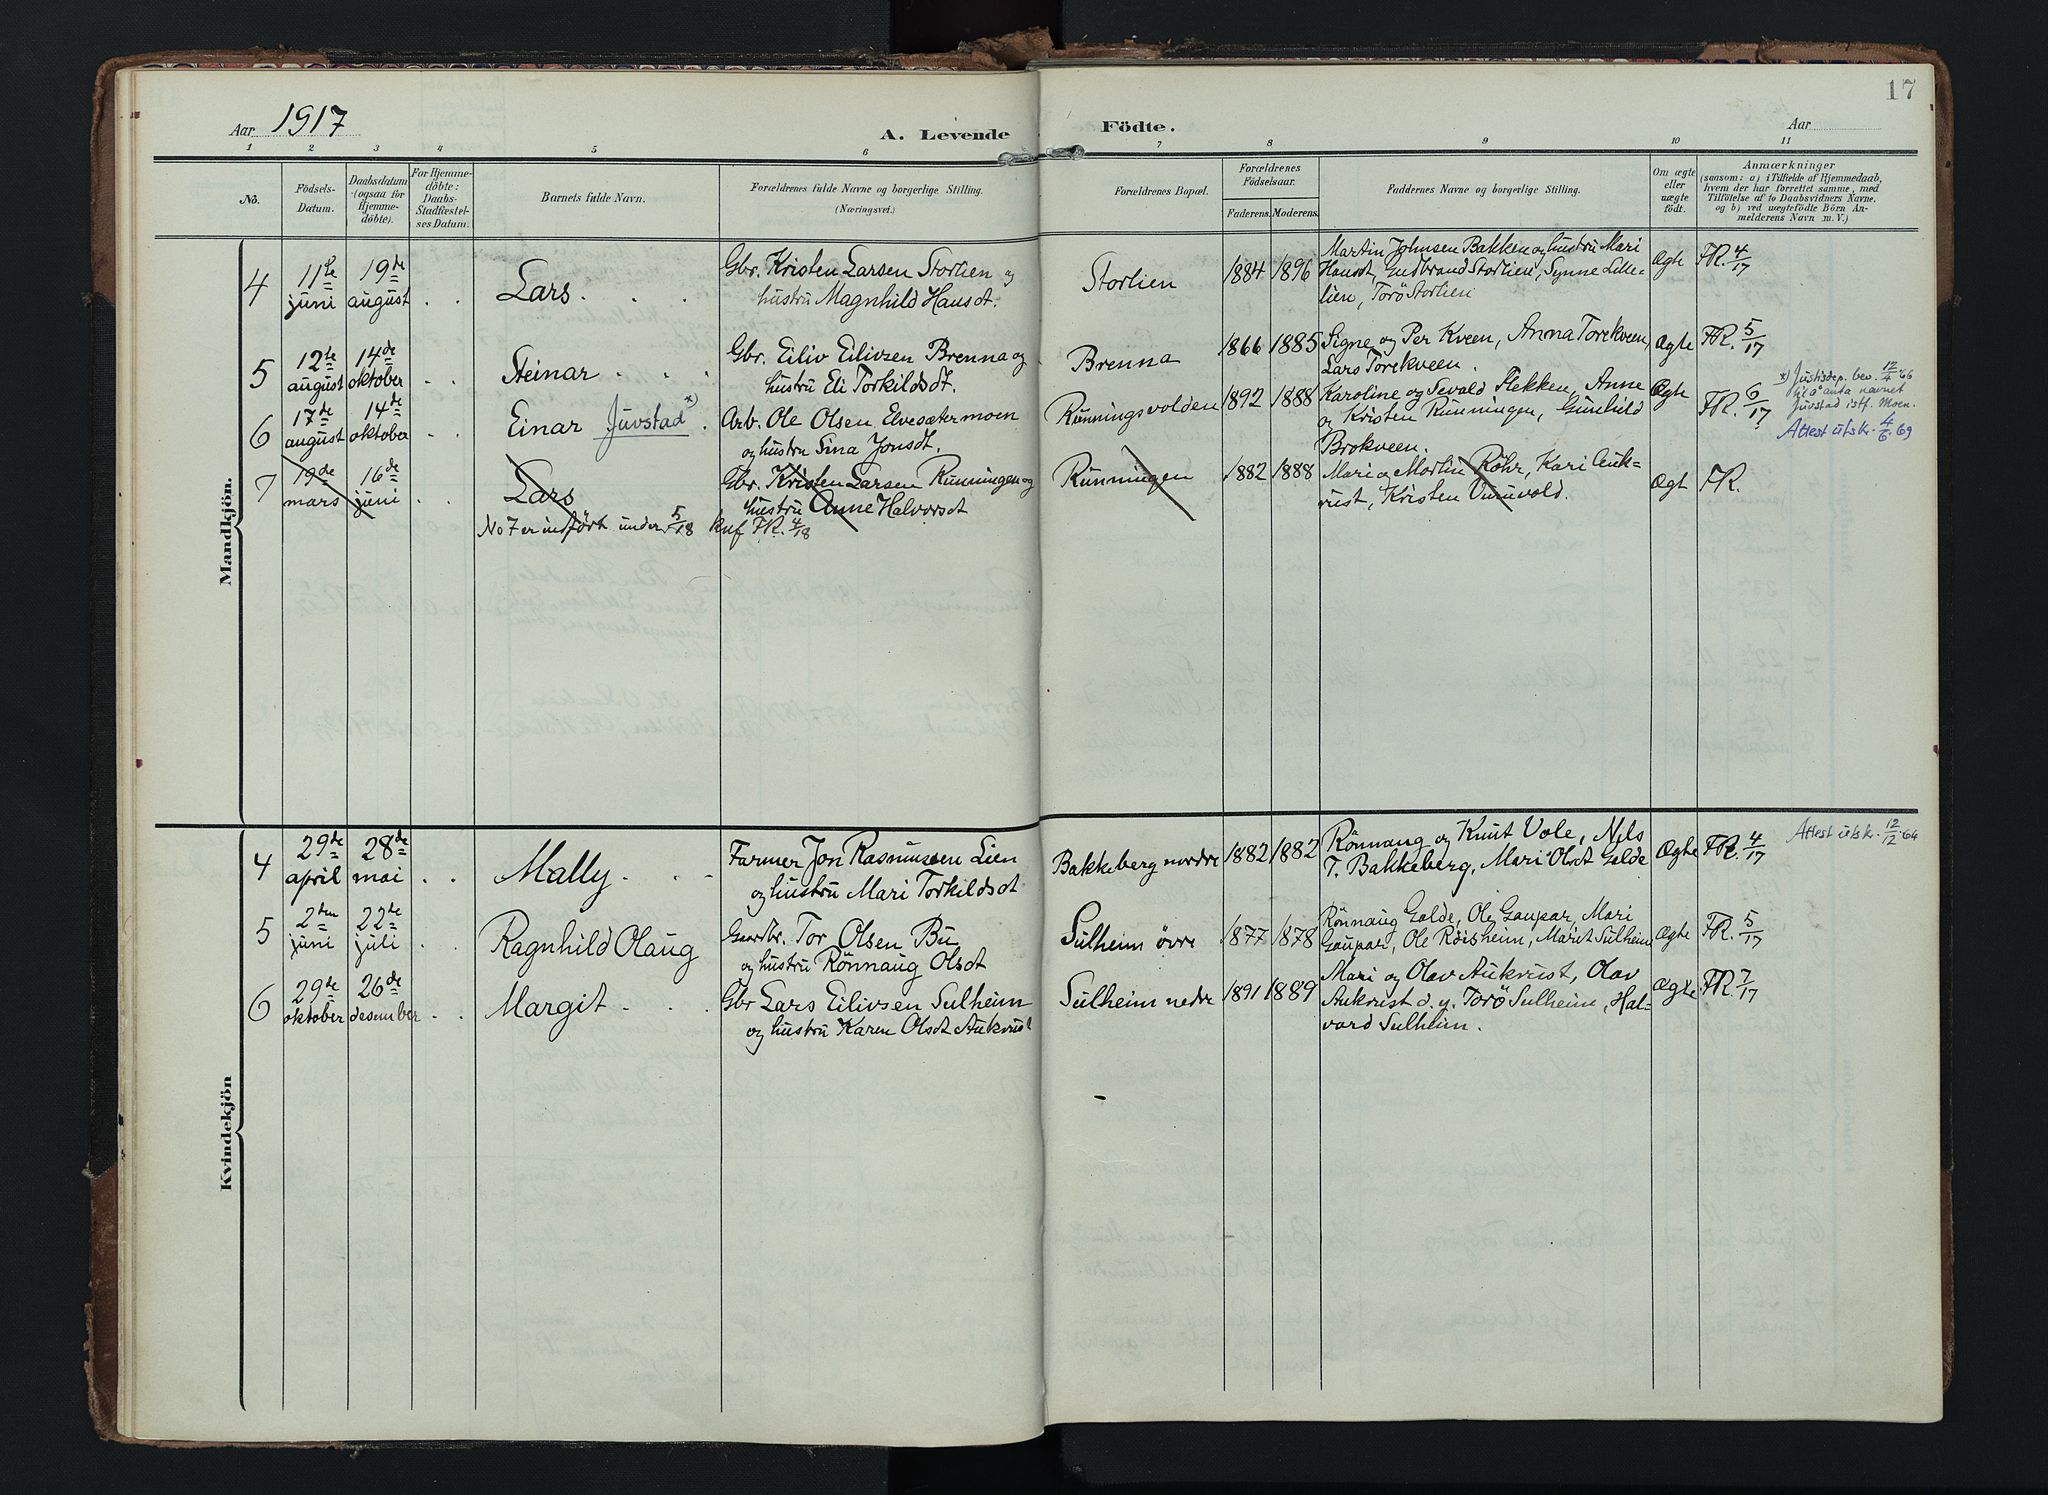 17
Aar 1917
A. Levende Födte.
Aar
1 2 3 4 5 6 7 8 9 10 11
No.
Födsels-Datum.
Daabsdatum (ogsaa for Hjemmedöbte).
For Hjemmedöbte: Daabs-Stadfæstelses Datum.
Barnets fulde Navn.
Forældrenes fulde Navne og borgerlige Stilling.
(Næringsvei.)
Forældrenes Bopæl.
Forældrenes Födselsaar.
Faderens. Moderens.
Faddernes Navne og borgerlige Stilling.
Om ægte eller uægte födt.
Anmærkninger
(saasom: a) i Tilfælde af Hjemmedaab, hvem der har forrettet samme, med Tilföielse af to Daabsvidners Navne, og b) ved uægtefödte Börn Anmelderens Navn m. V.)
Mandkjön.
4 11te juni 19de august Lars Gbr. Kristen Larsen Storlien og hustru Magnhild Hansdt. Storlien 1884 1896 Martin Johnsen Bakken og hustru Mari Hansdt, Gudbrand Storlien, Synne Lillelien, Torö Storlien Ægte FR. 4/17
5 12te august 14de oktober Steinar Gbr. Eiliv Eilivsen Brenna og hustru Eli Torkildsdt. Brenna 1866 1885 Signe og Per Kveen, Anna Torekveen, Lars Torekveen. Ægte FR. 5/17
6 17de august 14de oktober Einar Juvstad *) Arb. Ole Olsen Elvesæter moen og hustru Sina Jonsdt. Runningsvolden 1892 1888 Karoline og Sevald Flekken, Anne og Kristen Runningen, Gunhild Brokveen. Ægte FR. 6/17
*) Justisdep. bev. 12/4-66 til å anta navnet Juvstad istf. Moen.
Attest utskr. 4/6-69
7 19de mars 16de juni Lars Gbr. Kristen Larsen Runningen og hustru Anne Halvorsdt Runningen 1882 1888 Mari og Martin Röhr, Kari Aukrust, Kristen Vuluvold. Ægt FR.
No 7 er indfört under 5/18 knf FR. 4/18
Kvindekjön
4 29de april 28de mai Mally Farmer Jon Rasmussen Lien og hustru Mari Torkildsdt Bakkeberg nordre 1882 1882 Rönnaug og Knut Vole, Nils T. Bakkeberg, Mari Olsdt Galde Ægte FR. 4/17 Attest utskr. 12/12-64
5 2den juni 22de juli Ragnhild Olaug Gaardbr. Tor Olsen Bu og hustru Rönnaug Olsdt Sulheim övre 1877 1878 Rönnaug Galde, Ole Gaupar, Mari Gaupar, Ole Röisheim, Marit Sulheim Ægte FR. 5/17
6 29de oktober 26de desember Margit Gbr Lars Eilivsen Sulheim og hustru Karen Olsdt Aukrust Sulheim nedre 1891 1889 Mari og Olav Aukrust, Olav Aukrust d. y. Torö Sulheim, Halvard Sulheim. Ægte FR. 7/17